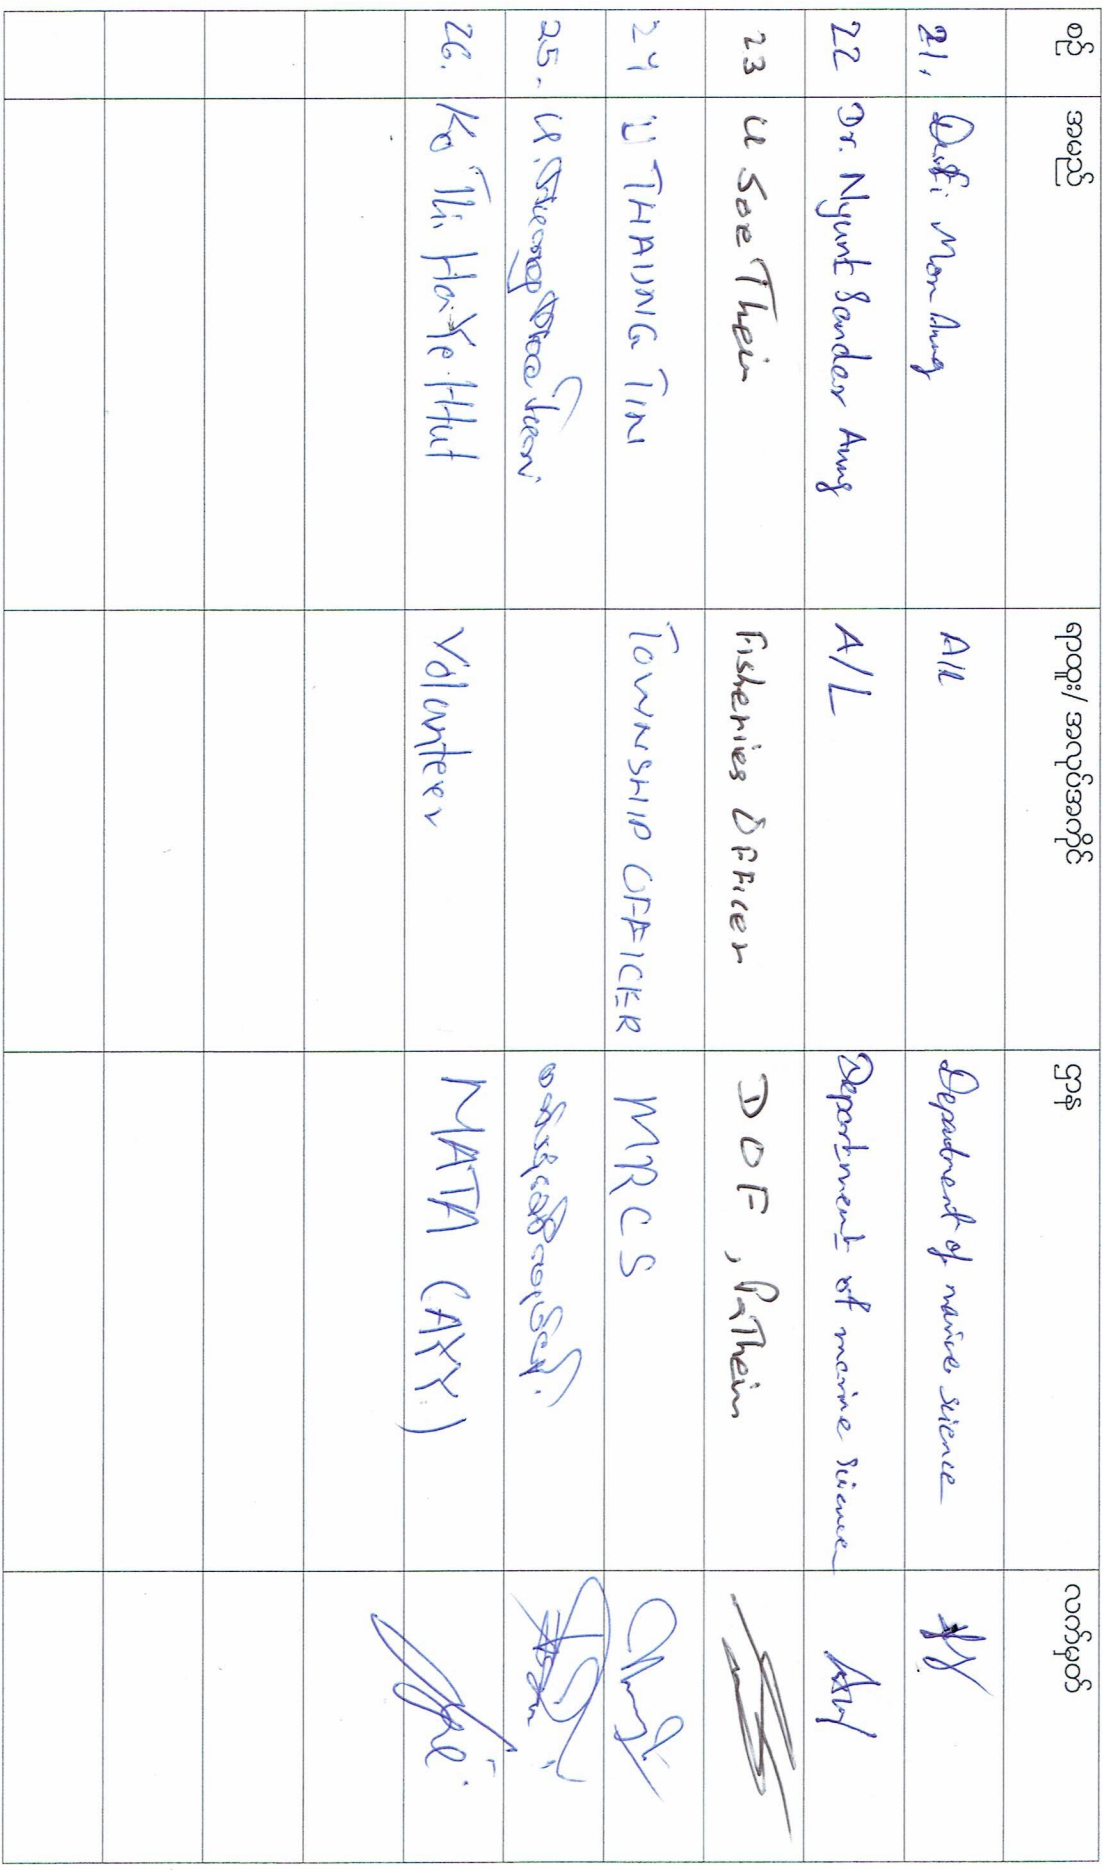 စဉ် အမည် ရာထူး/အလုပ်အကိုင် ဌာန လက်မှတ်
21. Mon Aung A/L Department of marine science
22 Dr. Nyunt Sandar Aung A/L Department of marine science
23 U Soe Thein Fisheries Officer DOF, PaThein
24 U THAUNG TIN TOWNSHIP OFFICER MRCS
25.
26. Ko Thi Ha Ye Htut Volunteer MATA (AYY)